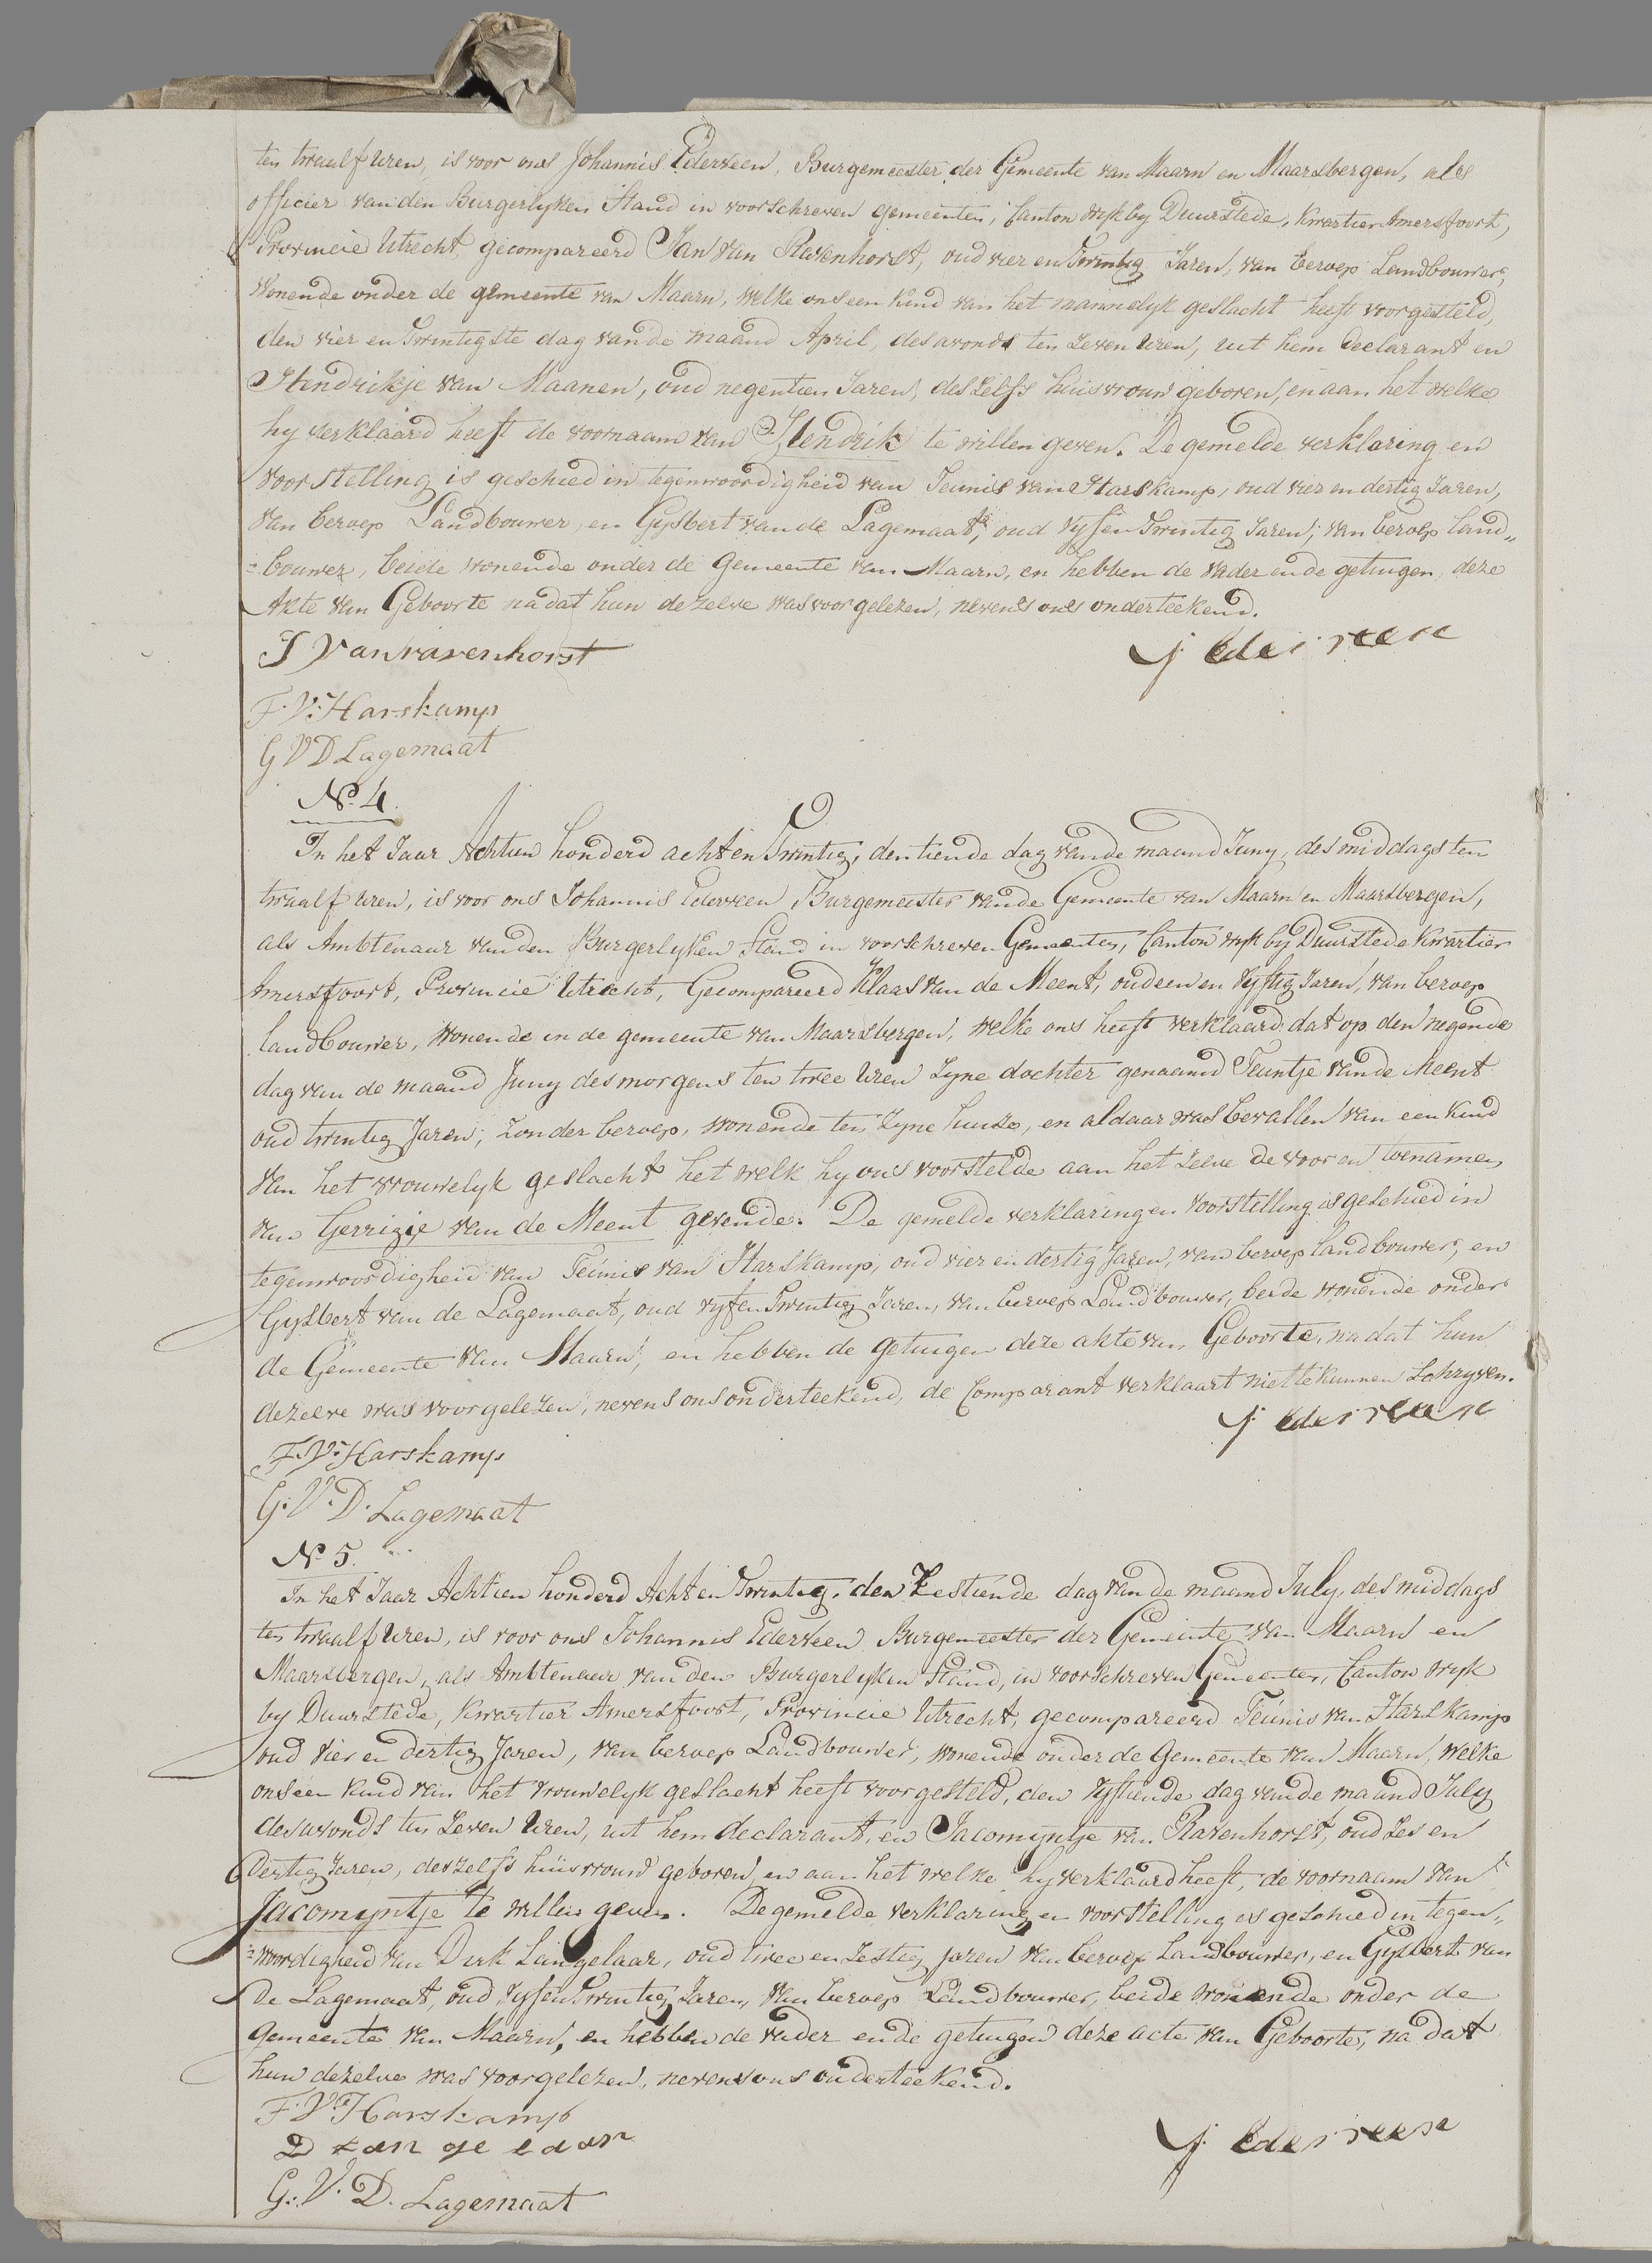 ten twaalf uren, is voor ons Johannis Ederveen, Burgemeester der Gemeente van Maarn en Maarsbergen, als
officier van den Burgerlyken Stand in voorschreven gemeenten, Canton Wyk by Duurstede, Kwartier Amersfoort,
Provincie Utrecht, gecompareerd Jan van Ravenhorst, oud vier en Twintig Jaren, van beroep Landbouwer,
Wonende onder de gemeente van Maarn, welke ons een Kind van het mannelyk geslacht heeft voorgesteld,
den vier en Twintigste dag van de maand April, des avonds ten zeven Uren, uit hem declarant en
Hendrikje van Maanen, oud negentien Jaren, deszelfs huisvrouw geboren, en aan het welke
hy verklaard heeft de voornaam van Hendrik te willen geven. De gemelde verklaring en
voorstelling is geschied in tegenwoordigheid van Teunis van Harskamp, oud vier en dertig Jaren,
van beroep Landbouwer, en Gysbert van de Lagemaat, oud vyf en Twintig Jaren, van beroep land„
=bouwer, beide wonende onder de Gemeente van Maarn, en hebben de vader en de getuigen, deze
Akte van Geboorte nadat hun dezelve was voorgelezen, nevens ons onderteekend.
J Van ravenhorst
J Ederveen
T. V: Harskamp
G V D Lagemaat
No. 4.
In het Jaar Achtien honderd acht en Twintig, den tiende dag van de maand Juny, des middags ten
twaalf uren, is voor ons Johannis Ederveen, Burgemeester van de Gemeente van Maarn en Maarsbergen,
als Ambtenaar van den Burgerlyken Stand in voorschreven Gemeenten, Canton wyk by Duurstede Kwartier
Amersfoort, Provincie Utrecht, Gecompareerd Klaas van de Meent, oud een en vyftig Jaren, van beroep
landbouwer, wonende in de gemeente van Maarsbergen, welke ons heeft verklaard dat op den negende
dag van de maand Juny des morgens ten twee Uren Zyne dochter genaamd Teuntje van de Meent
oud twintig Jaren, zonder beroep, wonende ten Zyne huize, en aldaar was bevallen van een Kind
van het vrouwelyk geslacht het welk hy ons voorstelde aan het zelve de voor en toenamen
van Gerrigje van de Meent gevende. De gemelde verklaring en voorstelling is geschied in
tegenwoordigheid van Teunis van Harskamp, oud vier en dertig Jaren, van beroep landbouwer, en
Gysbert van de Lagemaat, oud vyf en Twintig Jaren, van beroep Landbouwer, beide wonende onder
de Gemeente van Maarn, en hebben de getuigen deze akte van Geboorte, nadat hun
dezelve was voorgelezen, nevens ons onderteekend, de Comparant verklaart niet te kunnen Schryven.
J Ederveen
T. V: Harskamp
G: V. D. Lagemaat
No 5.
In het Jaar Achtien honderd Acht en Twintig, den Zestiende dag van de maand July, des middags
ten twaalf Uren, is voor ons Johannis Ederveen Burgemeester der Gemeente van Maarn en
Maarsbergen, als Ambtenaar van den Burgerlyken Stand, in voorschreven Gemeenten, Canton wyk
by Duurstede, Kwartier Amersfoort, Provincie Utrecht, gecompareerd Teunis van Harskamp
oud vier en dertig Jaren, van beroep Landbouwer, wonende onder de Gemeente van Maarn, welke
ons een kind van het vrouwelyk geslacht heeft voorgesteld, den vyftiende dag van de maand July
des avonds ten Zeven Uren, uit hem declarant, en Jacomyntje van Ravenhorst, oud Zes en
dertig Jaren, deszelfs huisvrouw geboren, en aan het welke hy verklaard heeft, de voornaam van
Jacomyntje te willen geven. De gemelde verklaring en voorstelling is geschied in tegen„
=woordigheid van Dirk Langelaar, oud twee en Zestig jaren van beroep Landbouwer, en Gysbert van
de Lagemaat, oud vyf en Twintig Jaren, van beroep Landbouwer, beide wonende onder de
Gemeente van Maarn, en hebben de vader en de getuigen deze acte van Geboorte, na dat
hun dezelve was voorgelezen, nevens ons onderteekend.
T. V. Harskamp
D Lan ge laar
J. Ederveen
G: V. D. Lagemaat